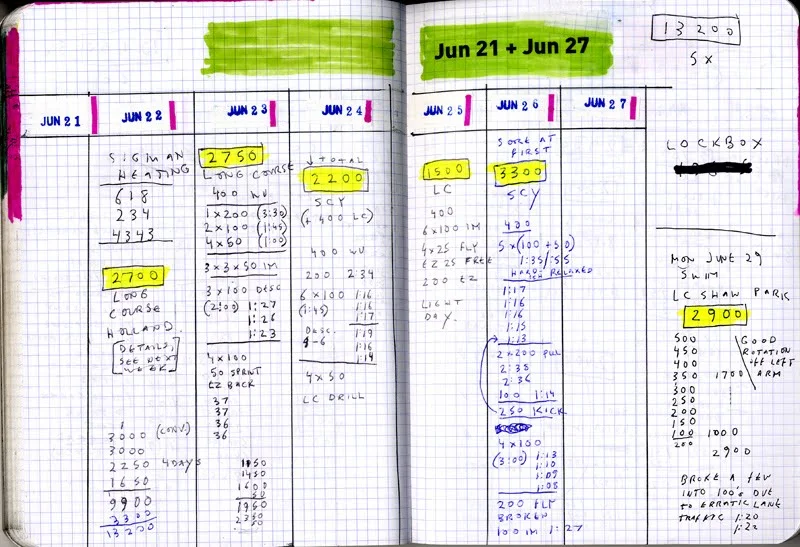 Jun 21 + Jun 27
13200
5X
JUN 21
JUN 22
SIGMAN
HEATING
618
234
4343
2700
LONG
COURSE
HOLLAND
[DETAILS,
SEE NEXT
WEEK]
3000 (CONV.)
3000
2250 4 DAYS
1650
9900
3300
13200
JUN 23
2750
LONG COURSE
400 WU
1 x 200 (3:30)
2 x 100 (1:45)
4 x 50 (1:00)
3 x 3 x 50 IM
3 x 100 DESC
(2:00) 1:27
1:26
1:23
4 x 100
50 SPRINT
EZ BACK
37
37
36
36
1450
1600
JUN 24
↓ TOTAL
2200
SCY
(+ 400 LC)
400 WU
200 2:34
6 x 100 1:16
(1:45) 1:16
1:17
DESC. 1:19
4-6 1:16
1:14
4 x 50
LC DRILL
JUN 25
1500
LC
400
6 x 100 IM
4 x 25 FLY
EZ 25 FREE
200 EZ
LIGHT
DAY.
JUN 26
SORE AT
FIRST
3300
SCY
400
5 x (100 + 50)
1:35/:55
HARD RELAXED
1:17
1:16
1:16
1:15
1:13
2 x 200 PULL
2:38
2:36
100 1:14
250 KICK
4 x 100
(3:00) 1:13
1:10
1:09
1:08
200 FLY
BROKEN
100 IM 1:27
JUN 27
LOCKBOX
MON JUNE 29
SWIM
LC SHAW PARK
2900
500
450
400
350 1700
300
250
200
150
100 1000
200
2900
GOOD
ROTATION
OFF LEFT
ARM
BROKE A FEW
INTO 100's DUE
TO ERRATIC LANE
TRAFFIC 1:20
1:22